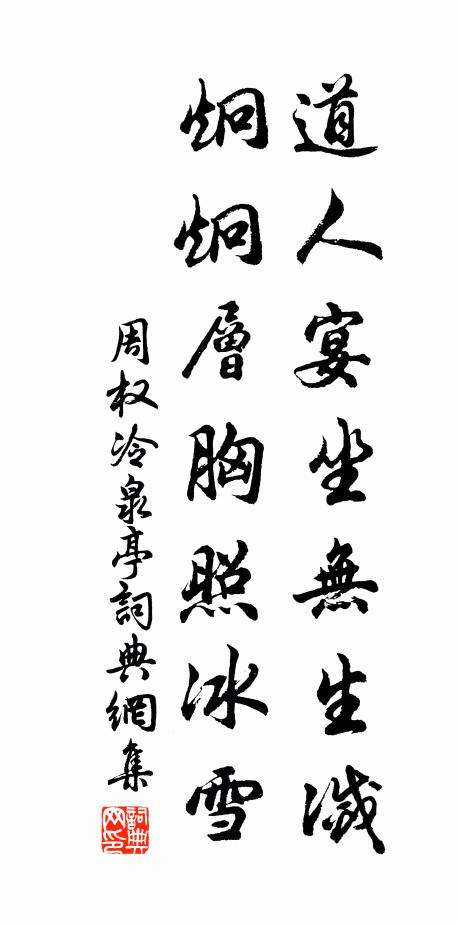 道人宴坐無生滅
炯炯層胸照冰雪
周权冷泉亭詞典網集
詞典网印